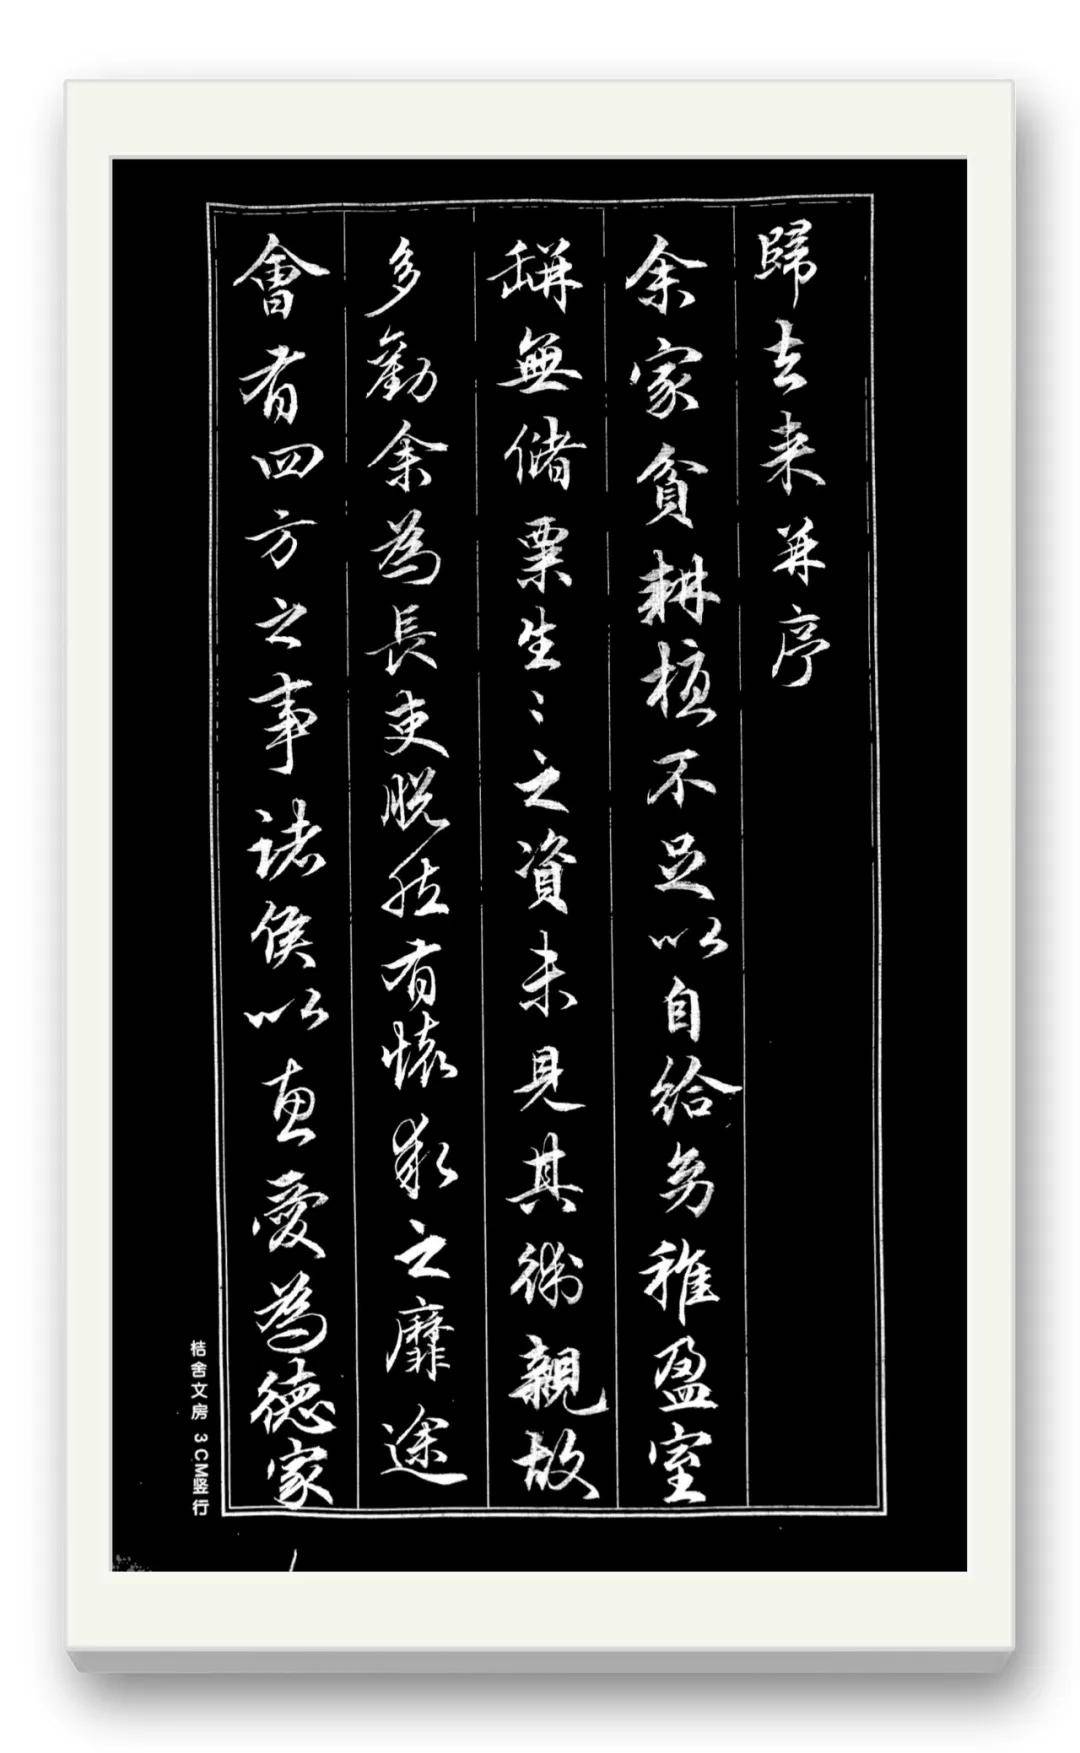 歸去来并序
余家貧耕植不足以自給幼稚盈室
缾無儲粟生〻之資未見其術親故
多勸余為長吏脱然有懷求之靡途
會有四方之事諸侯以惠愛為德家
桔舍文房 3CM竖行